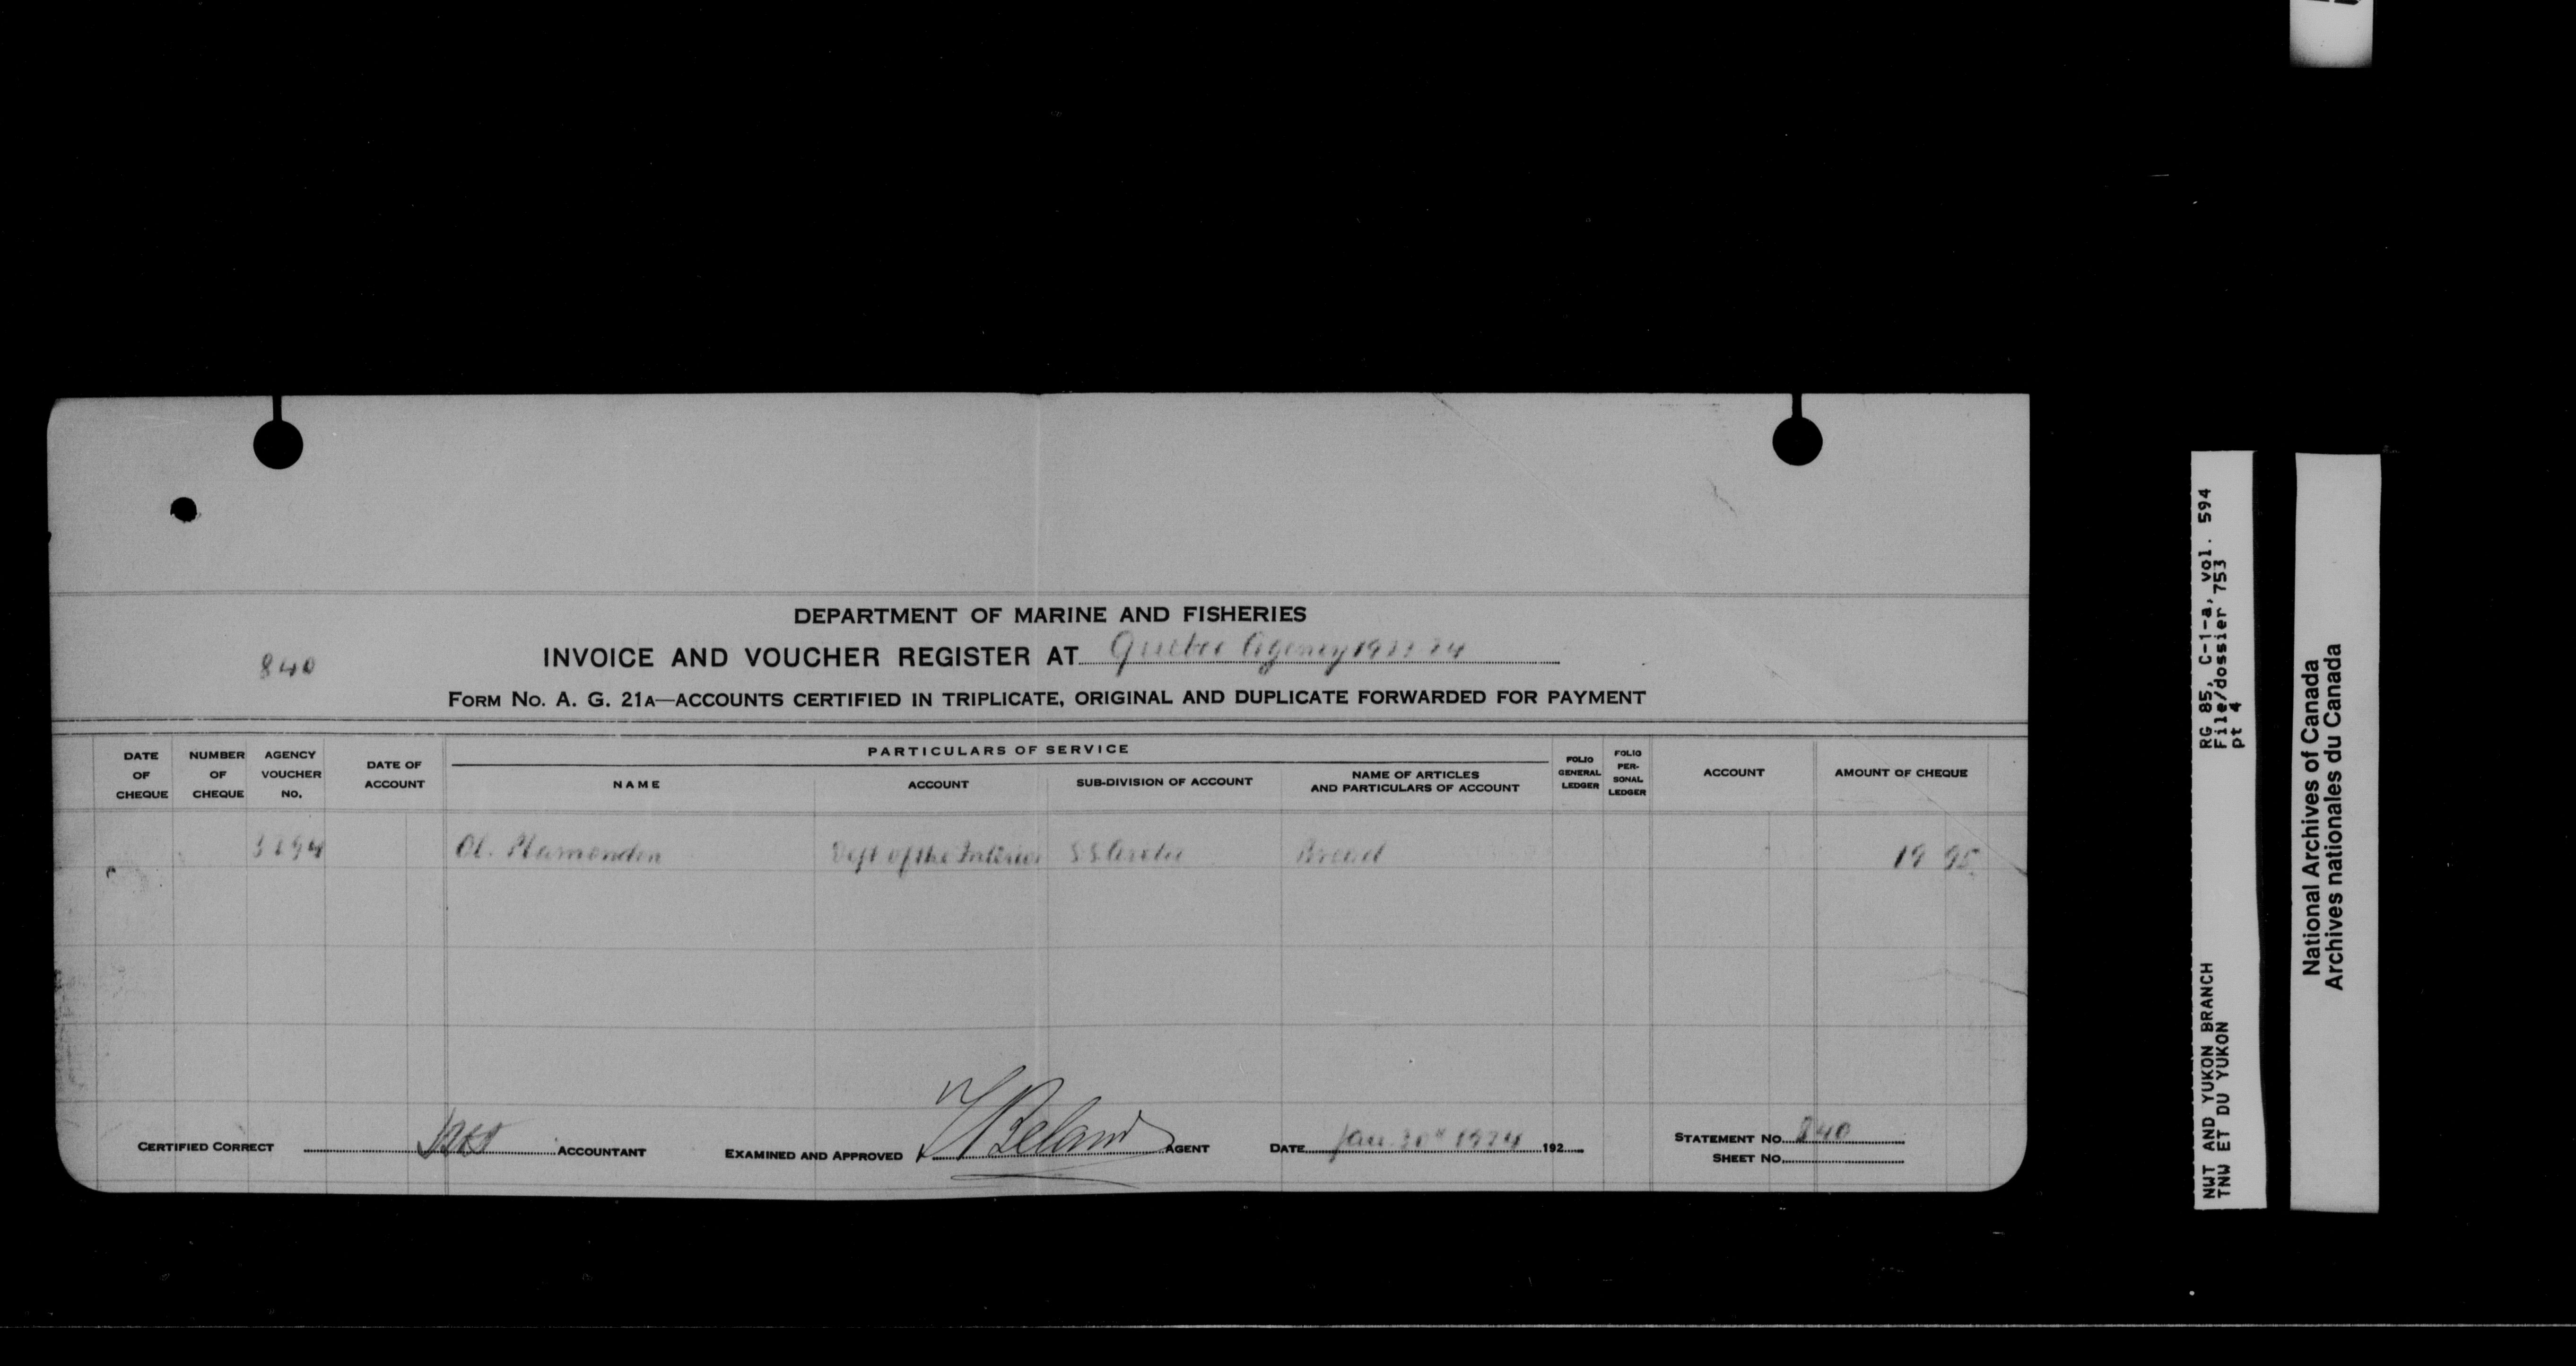 DEPARTMENT OF MARINE AND FISHERIES
840
INVOICE AND VOUCHER REGISTER AT Quebec Agency 1923-24
FORM NO. A. G. 21A—ACCOUNTS CERTIFIED IN TRIPLICATE, ORIGINAL AND DUPLICATE FORWARDED FOR PAYMENT
DATE OF CHEQUE
NUMBER OF CHEQUE
AGENCY VOUCHER NO.
DATE OF ACCOUNT
PARTICULARS OF SERVICE
NAME
ACCOUNT
SUB-DIVISION OF ACCOUNT
NAME OF ARTICLES AND PARTICULARS OF ACCOUNT
FOLIO GENERAL LEDGER
FOLIO PER- SONAL LEDGER
ACCOUNT
AMOUNT OF CHEQUE
Plamondon Dept of the Interior S.S. Arctic Bread 19 95
CERTIFIED CORRECT ACCOUNTANT
EXAMINED AND APPROVED Beland AGENT
DATE Jan 1924 192
STATEMENT NO. 840
SHEET NO.
RG 85, C-1-a, vol. 594
File/dossier 753
pt 4
NWT AND YUKON BRANCH
TNW ET DU YUKON
National Archives of Canada
Archives nationales du Canada